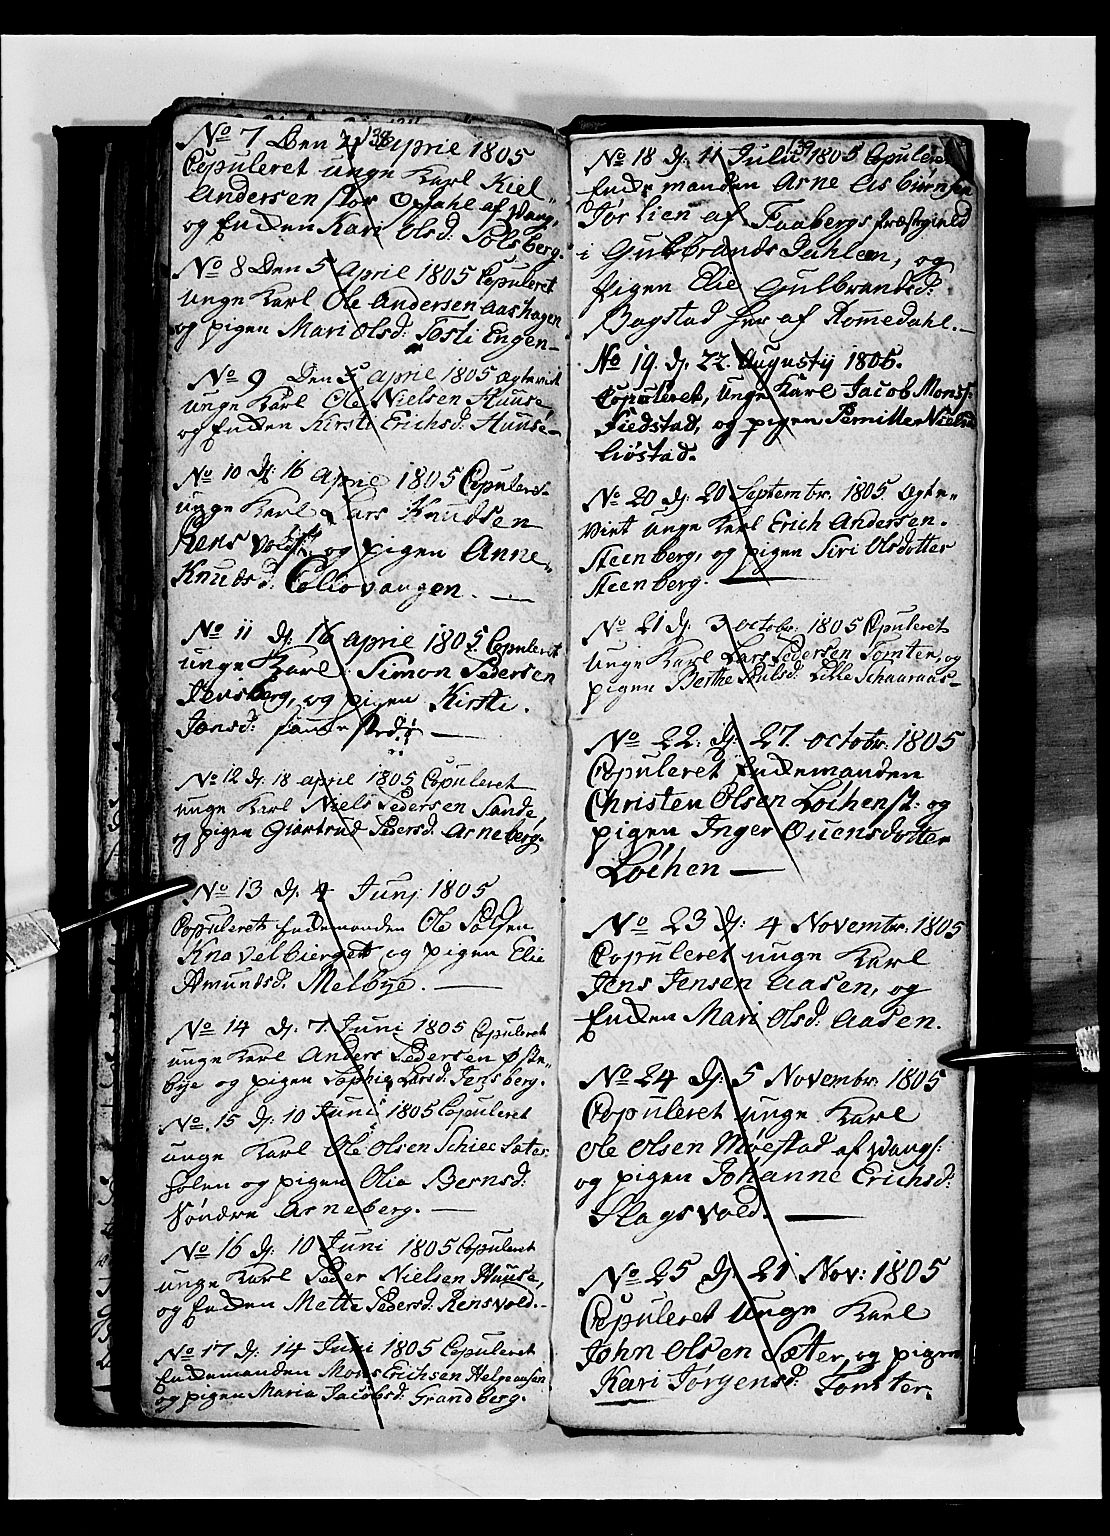 138
No 7 Den 2 Aprie 1805
Copuleret unge Karl Kiel
Andersen stor Opsahl af Vang,
og Enken Kari Olsd: Solsberg.
No 8 Den 5 April 1805 Copuleret
unge Karl Ole Andersen Aashagen
og pigen Mari Olsd: Tosti Engen –
No 9 Den 5 aprie 1805 Ægtevied
unge Karl Ole Nielsen Huuse
og Enken Kirsti Erichsd: Huuse –
No 10 dj: 16 Aprie 1805 Copuleret
unge Karl Lars Knudsen
Rensvold, og pigen Anne
Knudsd: Coliovangen. —
No 11 dj: 16 aprie 1805 Copuleret
unge Karl Simon Pedersen
Jensberg, og pigen Kirsti.
Jonsd: samme sted: —
No 12 dj: 18 aprie 1805 Copuleret
unge Karl Niels Pedersen Sande,
og pigen Giørtrud Pedersd: Arneberg.
No 13 dj. 4 Junj 1805
Copuleret Enkemanden Ole Polsen
Knavelbierget og pigen Elie
Amundsd: Melbye. —
No 14 dj. 7 Juni 1805 Copuleret
unge Karl Anders Pedersen Øste-
bye og pigen Sophia Larsd: Jensberg.
No. 15 dj. 10 Juni 1805 Copuleret
unge Karl Ole Olsen Schiee Sæter
og pigen Olia Bernsd:
Søndre Arneberg. —
No 16 dj. 10 Juni 1805 Copuleret
unge Karl Peder Nielsen Huuse,
og Enken Mette Pedersd: Rensvold.-
No 17 dj: 14 Juni 1805 Copuleret
Enkemanden Mons Erichsen Helgeausen
og pigen Maria Jacobsd: Grandberg.
139
No 18 dj. 11 Julii 1805 Copuleret
Enkemanden Arne Eisbiørnsen
Tørlien af Faabergs Præstegield
i Gulbrands Dahlen, og
Pigen Elie Gulbrandsd:
Bagstad her af Romedahl. —
No 19. dj. 22. Augustij 1805.
Copuleret, unge Karl Jacob Monss:
Fiedstad, og pigen Pernille Nielsd
Liøstad.
No 20 dj: 20 Septembr. 1805 Ægte-
viet unge Karl Erich Andersen.
Steenberg, og pigen Siri Olsdotter
Steenberg. —
No 21 dj. 3 octobr. 1805 Copuleret
unge Karl Lars Pedersen Tomten, og
pigen Berthe Poulsd: Lille Schaaraas –
No 22. dj: 27. octobr. 1805
Copuleret Enkemanden
Christen Olsen Løthenst: og
pigen Inger Ouensdotter
Løthen —
No 23 dj: 4 Novembr. 1805
Copuleret unge Karl
Jens Jensen Aasen, og
Enken Mari Olsd: Aasen.
No 24 dj: 5 Novembr. 1805
Copuleret unge Karl
Ole Olsen Møestad af Vangs:
og pigen Johanne Erichsd:
Slagsvold. —
No 25 dj. 21 Nov: 1805
Copuleret unge Karl
John Olsen Sæter, og pigen
Kari Jørgensd: Tomter.